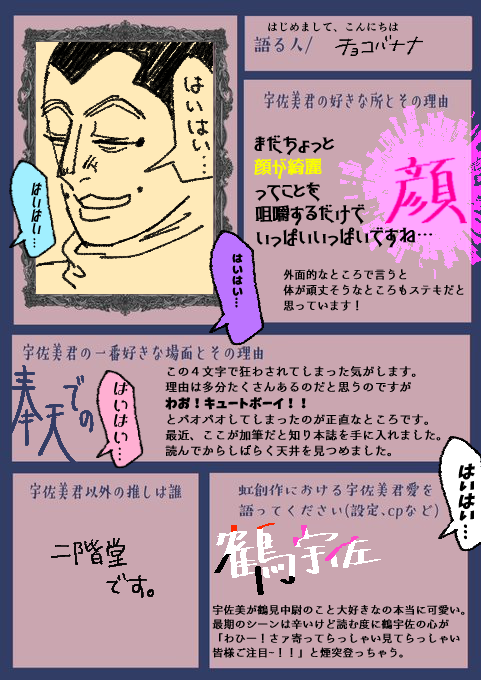 はじめまして、こんにちは
語る人/ チョコバナナ
はいはい…
はいはい…
はいはい…
宇佐美君の好きな所とその理由
まだちょっと
顔が綺麗
ってことを
咀嚼するだけで
いっぱいいっぱいですね…
顔
外面的なところで言うと
体が頑丈そうなところもステキだと
思っています！
宇佐美君の一番好きな場面とその理由
奉天での
はいはい…
この４文字で狂わされてしまった気がします。
理由は多分たくさんあるのだと思うのですが
わお！キュートボーイ！！
とバオバオしてしまったのが正直なところです。
最近、ここが加筆だと知り本誌を手に入れました。
読んでからしばらく天井を見つめました。
はいはい…
宇佐美君以外の推しは誰
二階堂
です。
虹創作における宇佐美君愛を
語ってください(設定､cpなど)
鶴宇佐
宇佐美が鶴見中尉のこと大好きなの本当に可愛い。
最期のシーンは辛いけど読む度に鶴宇佐の心が
「わひー！さァ寄ってらっしゃい見てらっしゃい
皆様ご注目~！！」と煙突登っちゃう。